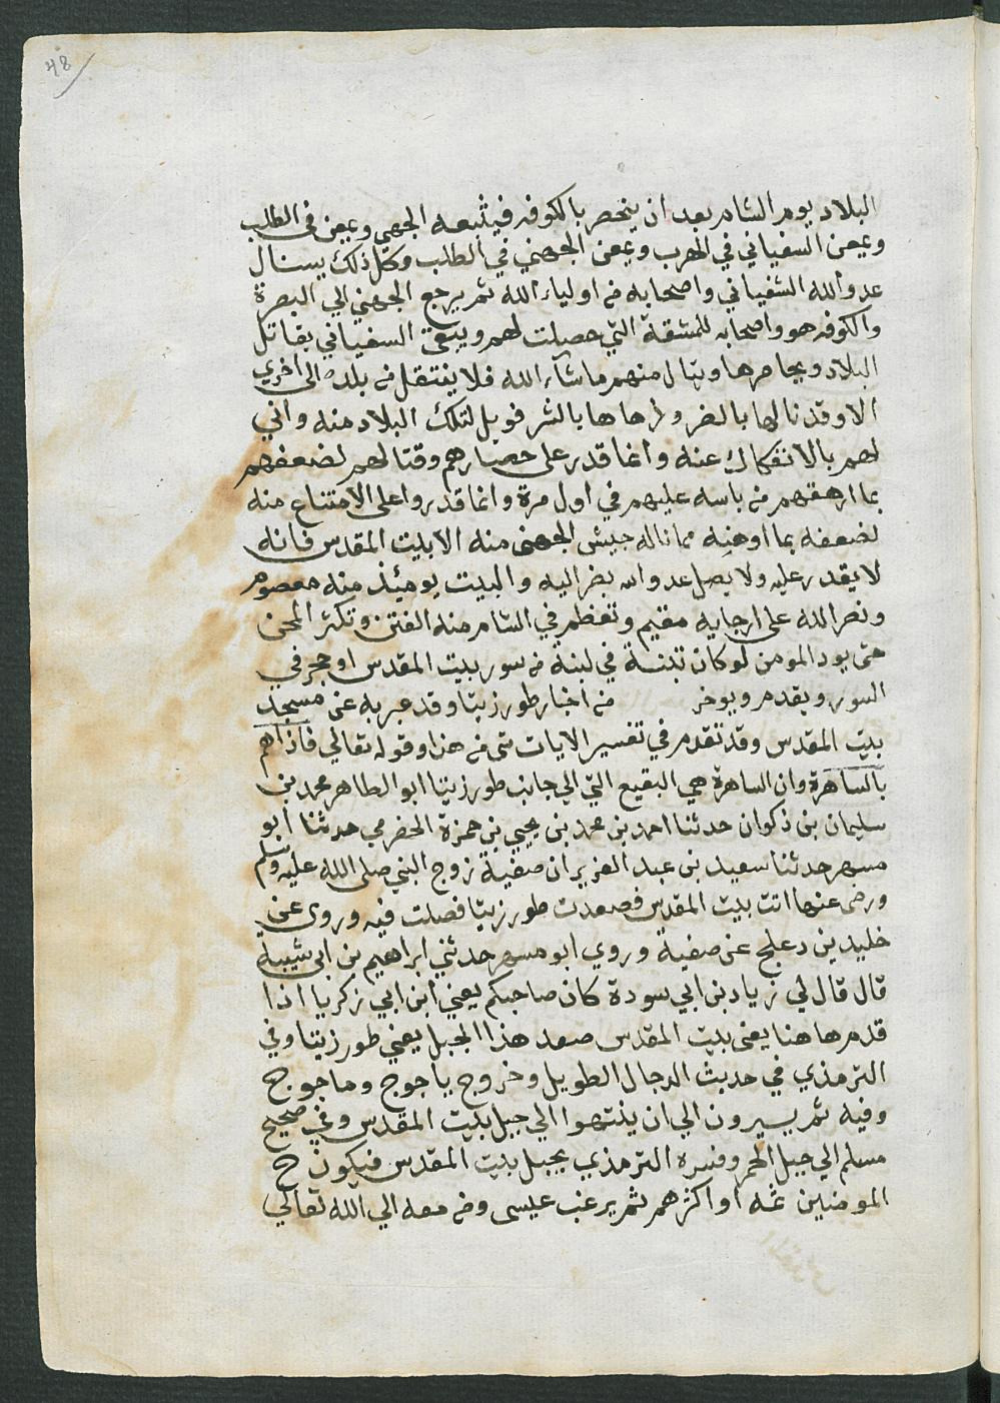 48
البلاد يوم الشام بعد ان ينحصر بالكوفه فيتبعه الجهني ويمعن في الطلب
ويمعن السفياني في الهرب ويمعن الجهني في الطلب وكل ذلك ينال
عدو الله السفياني واصحابه من اولياء الله ثم يرجع الجهني الي البصرة
والكوفه هو واصحابه للمشقة التي حصلت لهم ويبقى السفياني يقاتل
البلاد ويحاصرها وينال منهم ما شاء الله فلا ينتقل من بلد الى اخري
الا وقد نالها بالضر ورماها بالشر فويل لتلك البلاد منه واني
لهم بالانفكاك عنه وانما قدر على حصارهم وقتالهم لضعفهم
بما ارهقهم من باسه عليهم في اول مرة وانما قدروا على الامتناع منه
لضعفه بما اوهنه مما ناله جيش الجهني منه الا بيت المقدس فانه
لا يقدر عليه ولا يصل عدو الله بضر اليه والبيت يومئذ منه معصوم
ونصر الله على ارجايه مقيم وتعظم في الشام منه الفتن وتكثر المحن
حتى يود المومن لو كان تبنة في لبنة من سور بيت المقدس او حجر في
السور ويقدم ويوخر من اخبار طور زيتا وقد عبر به عن مسجد
بيت المقدس وقد تقدم في تفسير الايات شى من هذا وقوله تعالي فاذا هم
بالساهرة وان الساهرة هي البقيع التي الي جانب طور زيتا ابو الطاهر محمد بن
سليمان بن ذكوان حدثنا احمد بن محمد بن يحيي بن حمزة الحضرمي حدثنا ابو
مسهر حدثنا سعيد بن عبد العزيز ان صفية زوج النبي صلى الله عليه وسلم
ورضى عنها اتت بيت المقدس فصعدت طور زيتا فصلت فيه وروى عن
خليد بن دعلج عن صفية وروي ابو مسهر حدثني ابراهيم بن ابي شيبة
قال قال لي زياد بن ابي سودة كان صاحبكم يعني ابن ابي زكريا اذا
قدم ها هنا يعني بيت المقدس صعد هذا الجبل يعني طور زيتا وفي
الترمذي في حديث الدجال الطويل وخروج ياجوج وماجوج
وفيه ثم يسيرون الي ان ينتهوا الي جبل بيت المقدس وفي صحيح
مسلم الي جبل الخمر وفسره الترمذي بجبل بيت المقدس فيكون ح
المومنين ثمه او اكثرهم ثم يرغب عيسى ومن معه الي الله تعالي